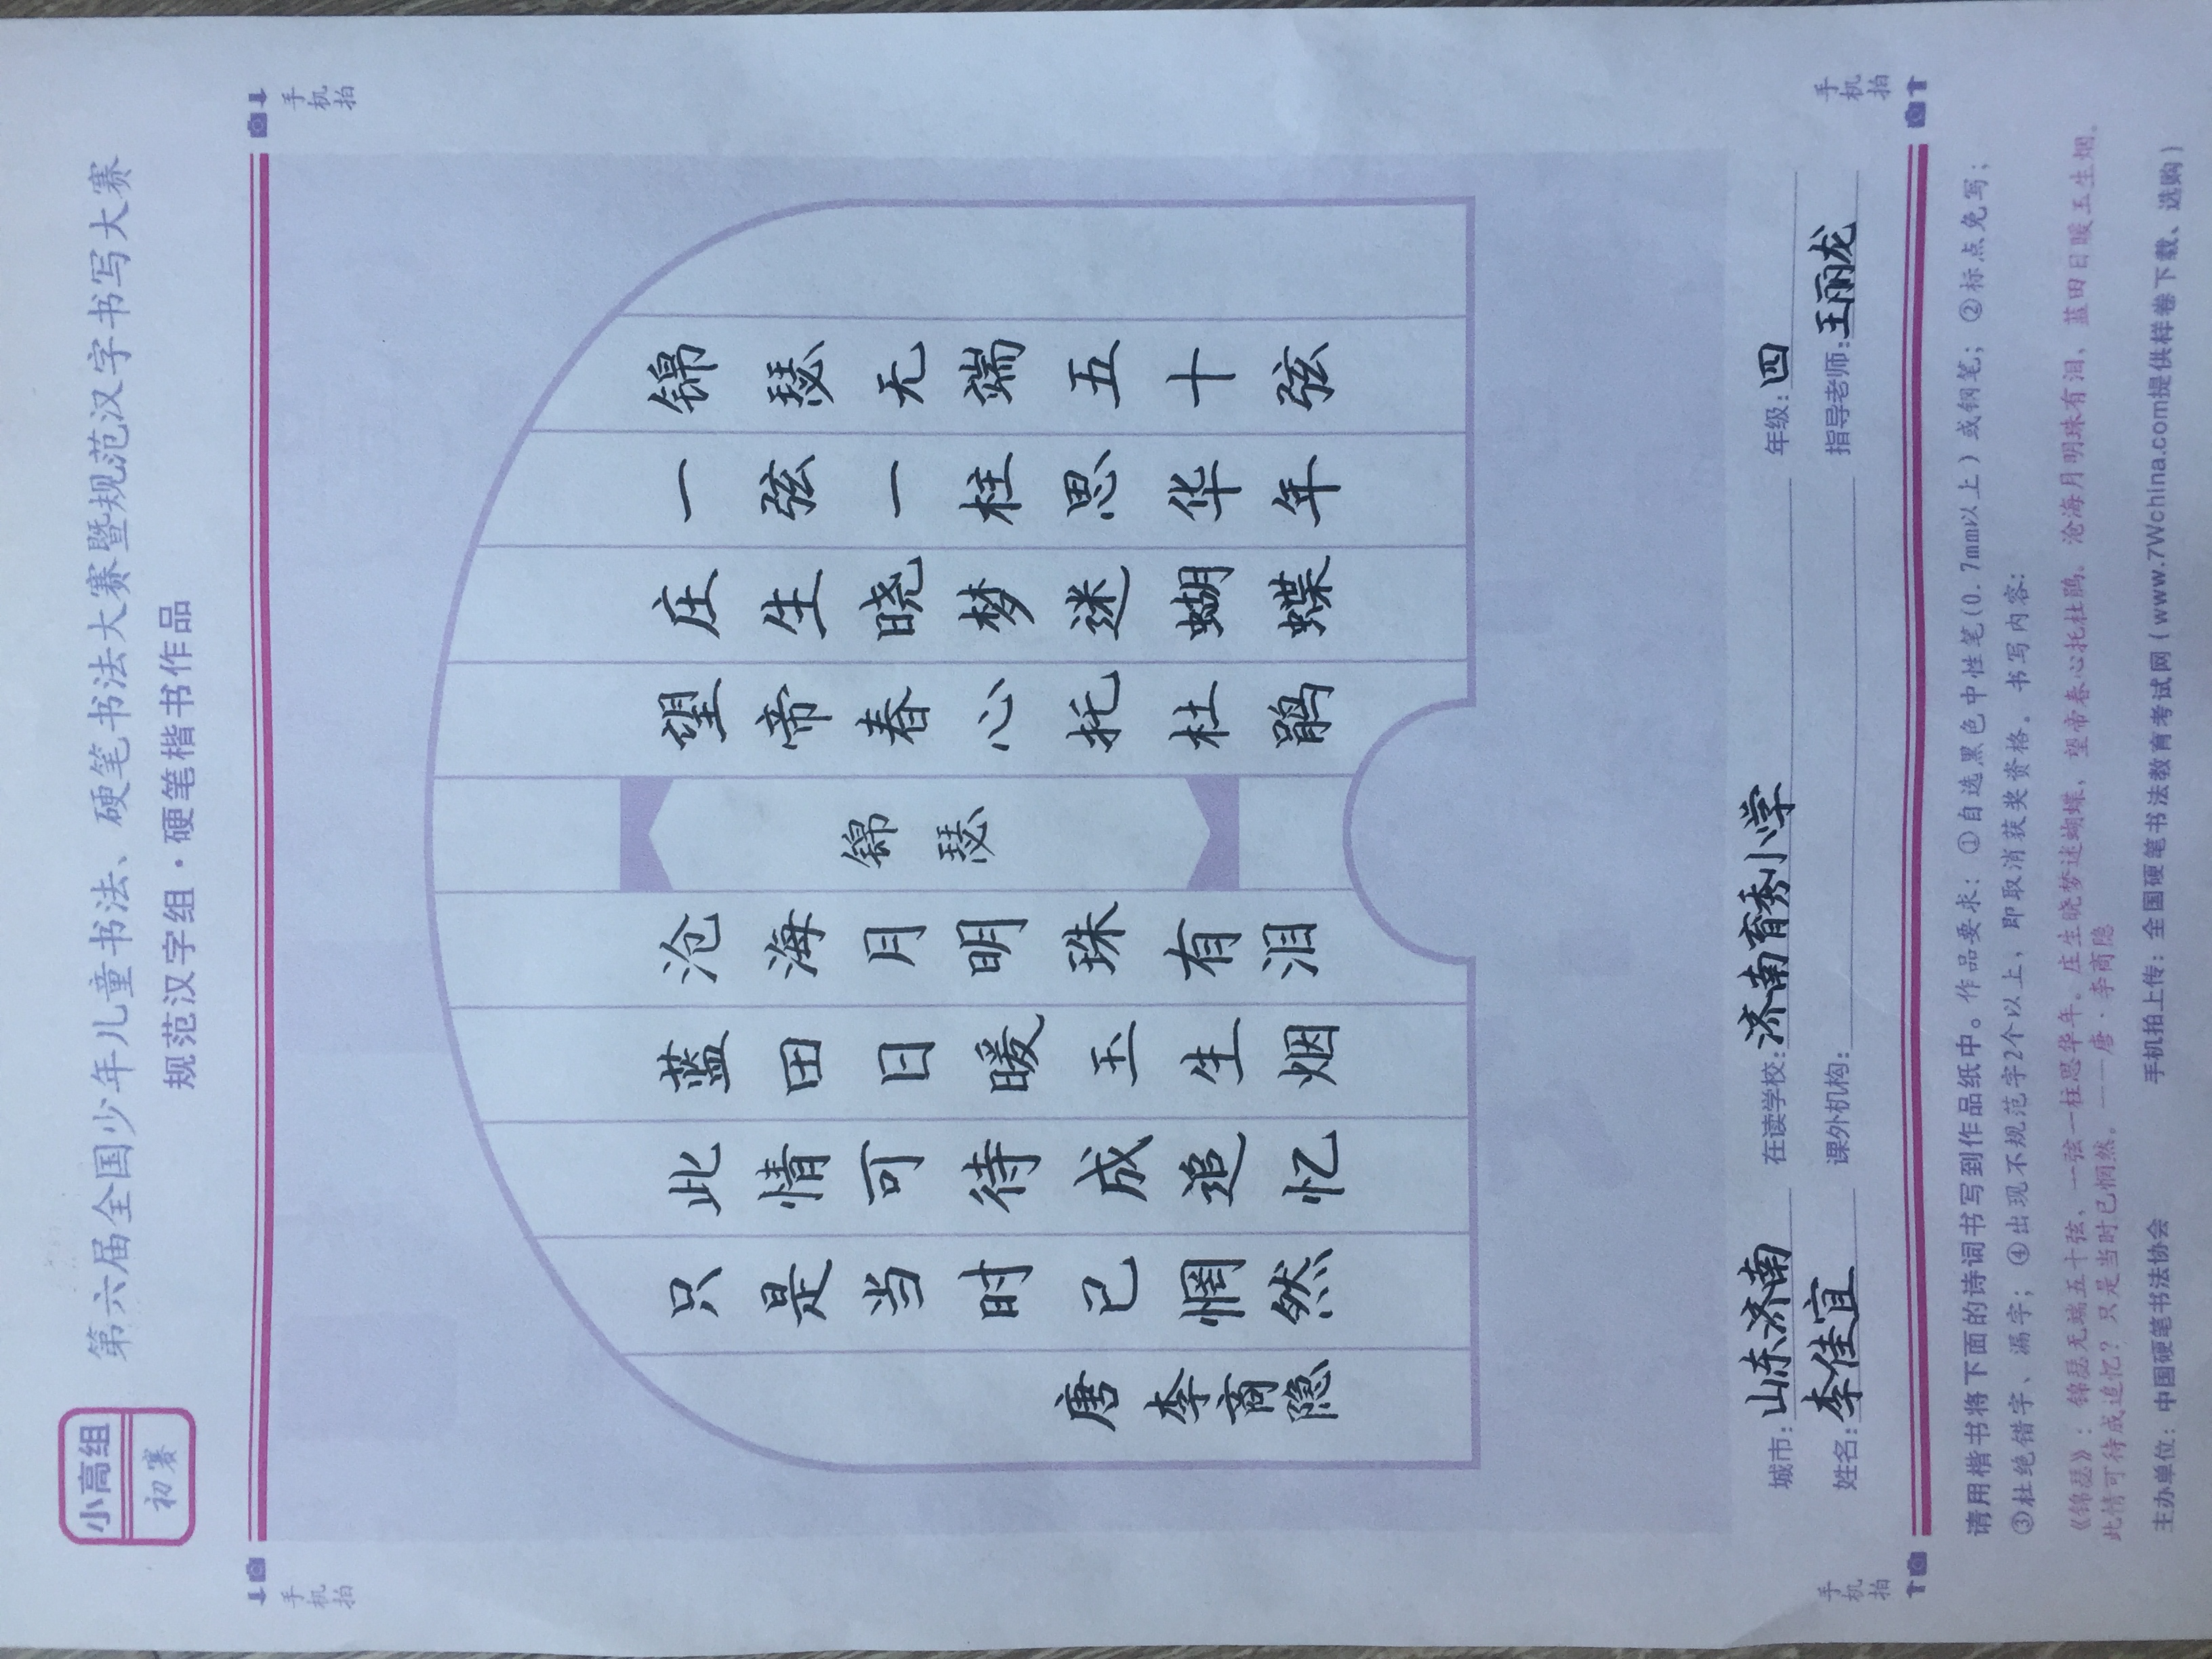 小高组
初赛
第六届全国少年儿童书法、硬笔书法大赛暨规范汉字书写大赛
规范汉字组·硬笔楷书作品
手机拍
手机拍
锦瑟无端五十弦
一弦一柱思华年
庄生晓梦迷蝴蝶
望帝春心托杜鹃
锦瑟
沧海月明珠有泪
蓝田日暖玉生烟
此情可待成追忆
只是当时已惘然
唐李商隐
城市:山东济南 在读学校:济南育秀小学 年级:四
姓名:李佳宜 课外机构: 指导老师:王丽龙
手机拍
手机拍
请用楷书将下面的诗词书写到作品纸中。作品要求:①自选黑色中性笔(0.7mm以上)或钢笔;②标点免写;
③杜绝错字、漏字;④出现不规范字2个以上,即取消获奖资格。书写内容:
《锦瑟》:锦瑟无端五十弦,一弦一柱思华年。庄生晓梦迷蝴蝶,望帝春心托杜鹃。沧海月明珠有泪,蓝田日暖玉生烟。
此情可待成追忆?只是当时已惘然。——唐·李商隐
主办单位:中国硬笔书法协会 手机拍上传:全国硬笔书法教育考试网(www.7Wchina.com提供样卷下载、选购)